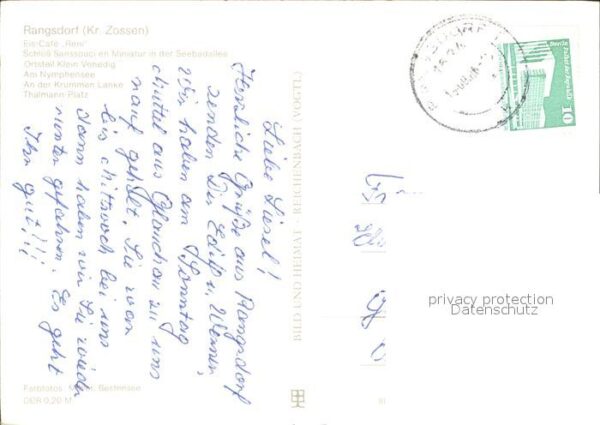 Rangsdorf (Kr. Zossen)
Eis-Café „Reni"
Schloß Sanssouci en Miniatur in der Seebadallee
Ortsteil Klein Venedig
Am Nymphensee
An der Krummen Lanke
Thälmann-Platz
Liebe Liesel!
Herzliche Grüße aus Rangsdorf
senden Dir Edith u. Werner,
Wir haben am Sonntag
Mutter aus Glauchau zu uns
nauf geholt. Sie war
bis Mittwoch bei uns
dann haben wir Sie wieder
runter gefahren. Es geht
Ihr gut!!!
BILD UND HEIMAT · REICHENBACH (VOGTL)
Farbfotos: Bestensee
DDR 0,20 M
10
privacy protection
Datenschutz